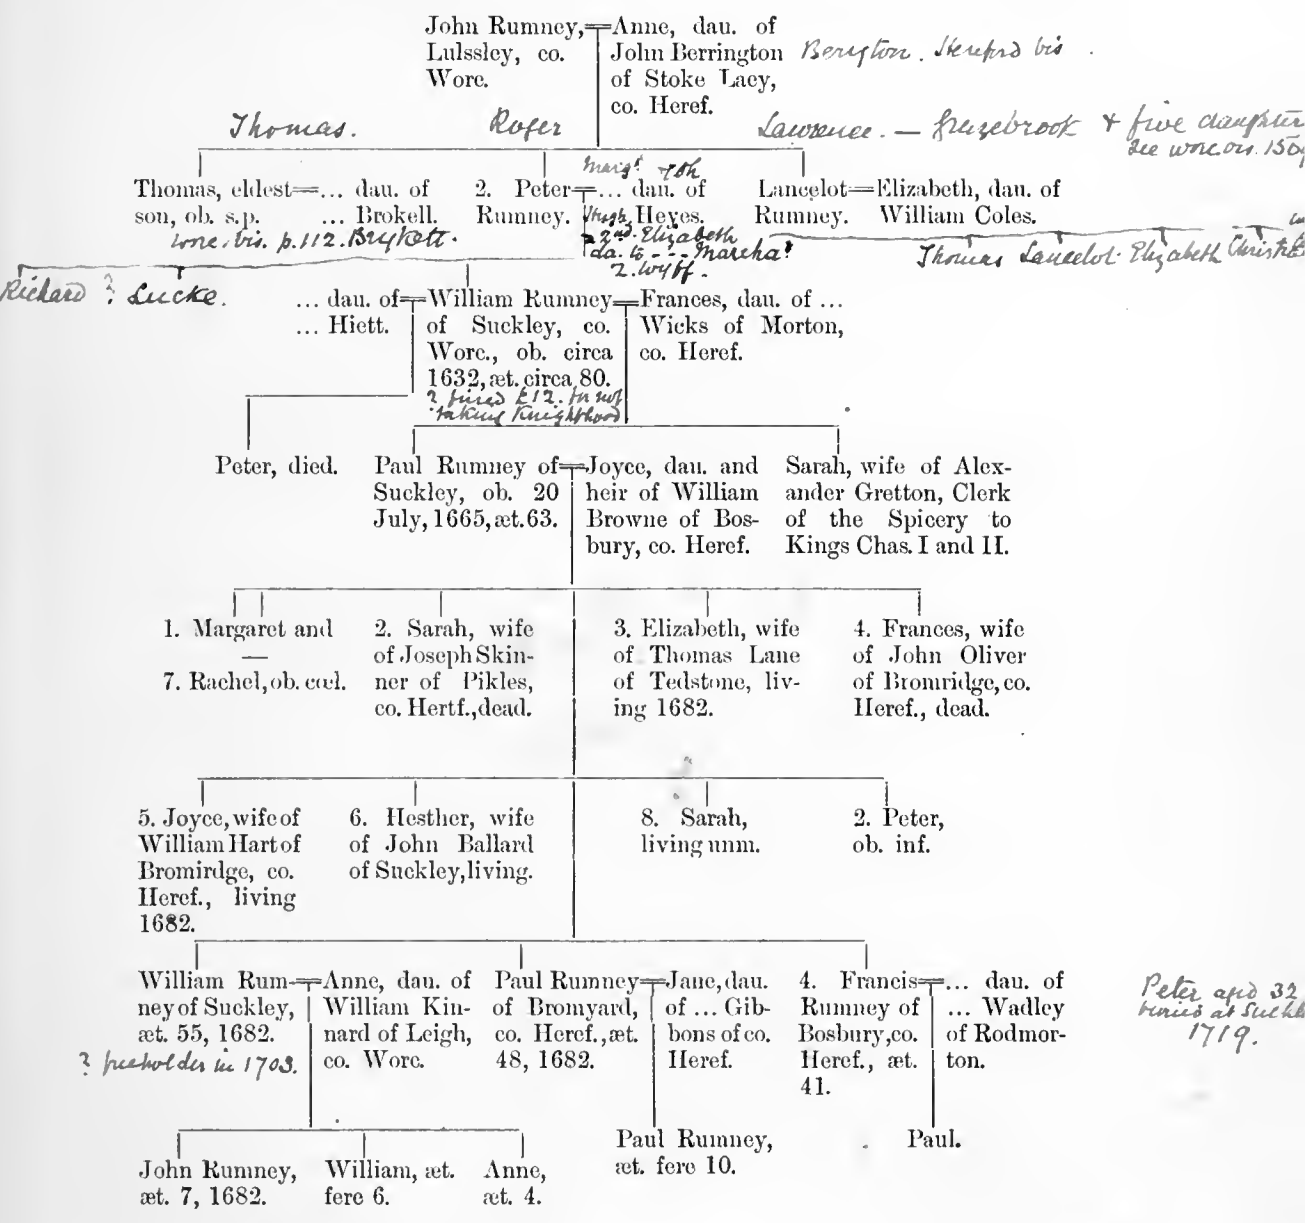 John Rumney, Anne, dau. of
Lulssley, co. John Berrington
Worc. of Stoke Lacy,
co. Heref.
Hereford bis
Thomas. Roger Lawrence. — Grazebrook & five daughters
see
Thomas, eldest ... dau. of
son, ob. s.p. ... Brokell.
p. 112. Brykett.
2. Peter ... dau. of
Rumney. Hugh Heyes.
2nd. Elizabeth
da. to - - -
2. wyff.
Lancelot Elizabeth, dau. of
Rumney. William Coles.
Thomas Lancelot Elizabeth
Richard ? Lucke.
... dau. of
... Hiett.
William Rumney
of Suckley, co.
Worc., ob. circa
1632, æt. circa 80.
? fined £12. for not
taking Knighthood
Frances, dau. of ...
Wicks of Morton,
co. Heref.
Peter, died.
Paul Rumney of
Suckley, ob. 20
July, 1665, æt. 63.
Joyce, dau. and
heir of William
Browne of Bos-
bury, co. Heref.
Sarah, wife of Alex-
ander Gretton, Clerk
of the Spicery to
Kings Chas. I and II.
1. Margaret and
—
7. Rachel, ob. cœl.
2. Sarah, wife
of Joseph Skin-
ner of Pikles,
co. Hertf., dead.
3. Elizabeth, wife
of Thomas Lane
of Tedstone, liv-
ing 1682.
4. Frances, wife
of John Oliver
of Bromridge, co.
Heref., dead.
5. Joyce, wife of
William Hart of
Bromirdge, co.
Heref., living
1682.
6. Hesther, wife
of John Ballard
of Suckley, living.
8. Sarah,
living unm.
2. Peter,
ob. inf.
William Rum-
ney of Suckley,
æt. 55, 1682.
? freeholder in 1703.
Anne, dau. of
William Kin-
nard of Leigh,
co. Worc.
Paul Rumney
of Bromyard,
co. Heref., æt.
48, 1682.
Jane, dau.
of ... Gib-
bons of co.
Heref.
4. Francis
Rumney of
Bosbury, co.
Heref., æt.
41.
... dau. of
... Wadley
of Rodmor-
ton.
Peter aged 32
buried at
1719.
John Rumney,
æt. 7, 1682.
William, æt.
fere 6.
Anne,
æt. 4.
Paul Rumney,
æt. fere 10.
Paul.